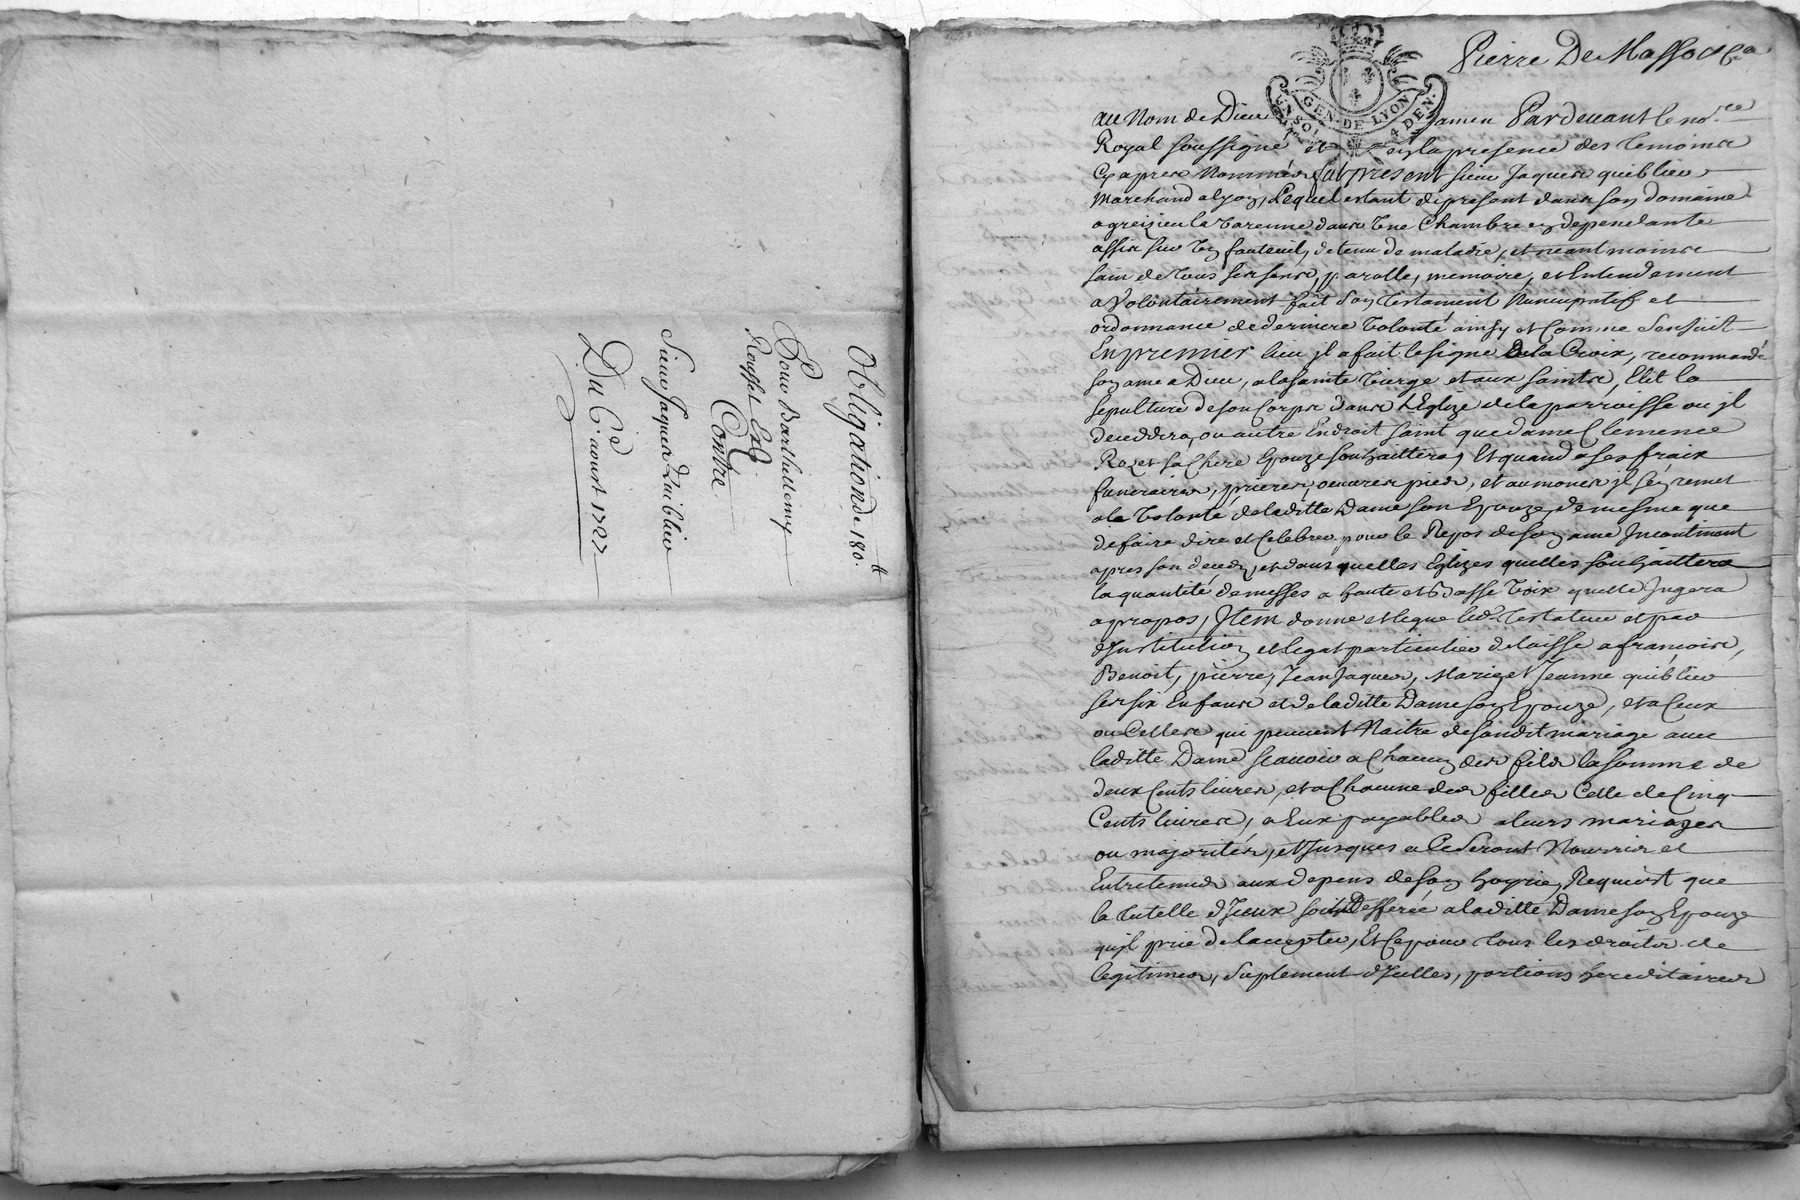 Obligation de 180 ₶
Pour Barthelemy
Rousset
Contre
Sieur Jaques Quiblier
Du 6e aoust 1727
Pierre De Masso
GEN. DE LYON
UN SOL 4 DEN.
au Nom de Dieu amen Pardevant le no.re
Royal soussigné et en la presence des temoins
Cy apres Nommés fut present sieur Jaques quiblier
Marchand a lyon, Lequel estant de present dans son domaine
a greizieu la varenne dans une Chambre en dependante
assis sur un fauteuil, detenu de maladie, et neantmoins
sain de tous ses sens, parolle, memoire, et Entendement
a Volontairement fait son testament Nuncupatif et
ordonnance de derniere volonté ainsy et Comme s'ensuit
En premier lieu jl a fait le signe de la Croix, recommandé
son ame a Dieu, a la sainte vierge et aux saints, Elit la
sepulture de son Corps dans L'Eglize de la parroisse ou jl
deceddera, ou autre Endroit saint que dame Clemence
Rozet sa Chere Epouze souhaittera, Et quand a ses fraix
funeraires, prieres, oeuvres pies, et aumones jl s'en remet
a la volonté de laditte Dame son Epouze, de mesme que
de faire dire et Celebrer pour le Repos de son ame Jncontinent
apres son déceds, et dans quelles Eglizes quelles souhaittera
la quantité de messes a haute et Basse voix quelle Jugera
a propos, Jtem donne et legue led. testateur et par
d'Institution et legat particulier delaisse a francoise,
Benoit, pierre, Jean Jaques, Marie, et Jeanne quiblier
ses six Enfans et de laditte Dame son Epouze, et a Ceux
ou Celles qui peuvent Naitre de sondit mariage avec
laditte Dame scavoir a Chacun des fils la somme de
deux Cents livres, et a Chacune des filles Celle de Cinq
Cents livres, a Eux payables a leurs mariages
ou majorités, et Jusques a Ce seront Nourris et
Entretenus aux depens de son hoyrie, Requiert que
la tutelle d'Jceux soit Defferée a laditte Dame son Epouze
qu'jl prie de l'accepter, Et Ce pour tous les droits de
legitimes, suplement d'Jcelles, portions hereditaires